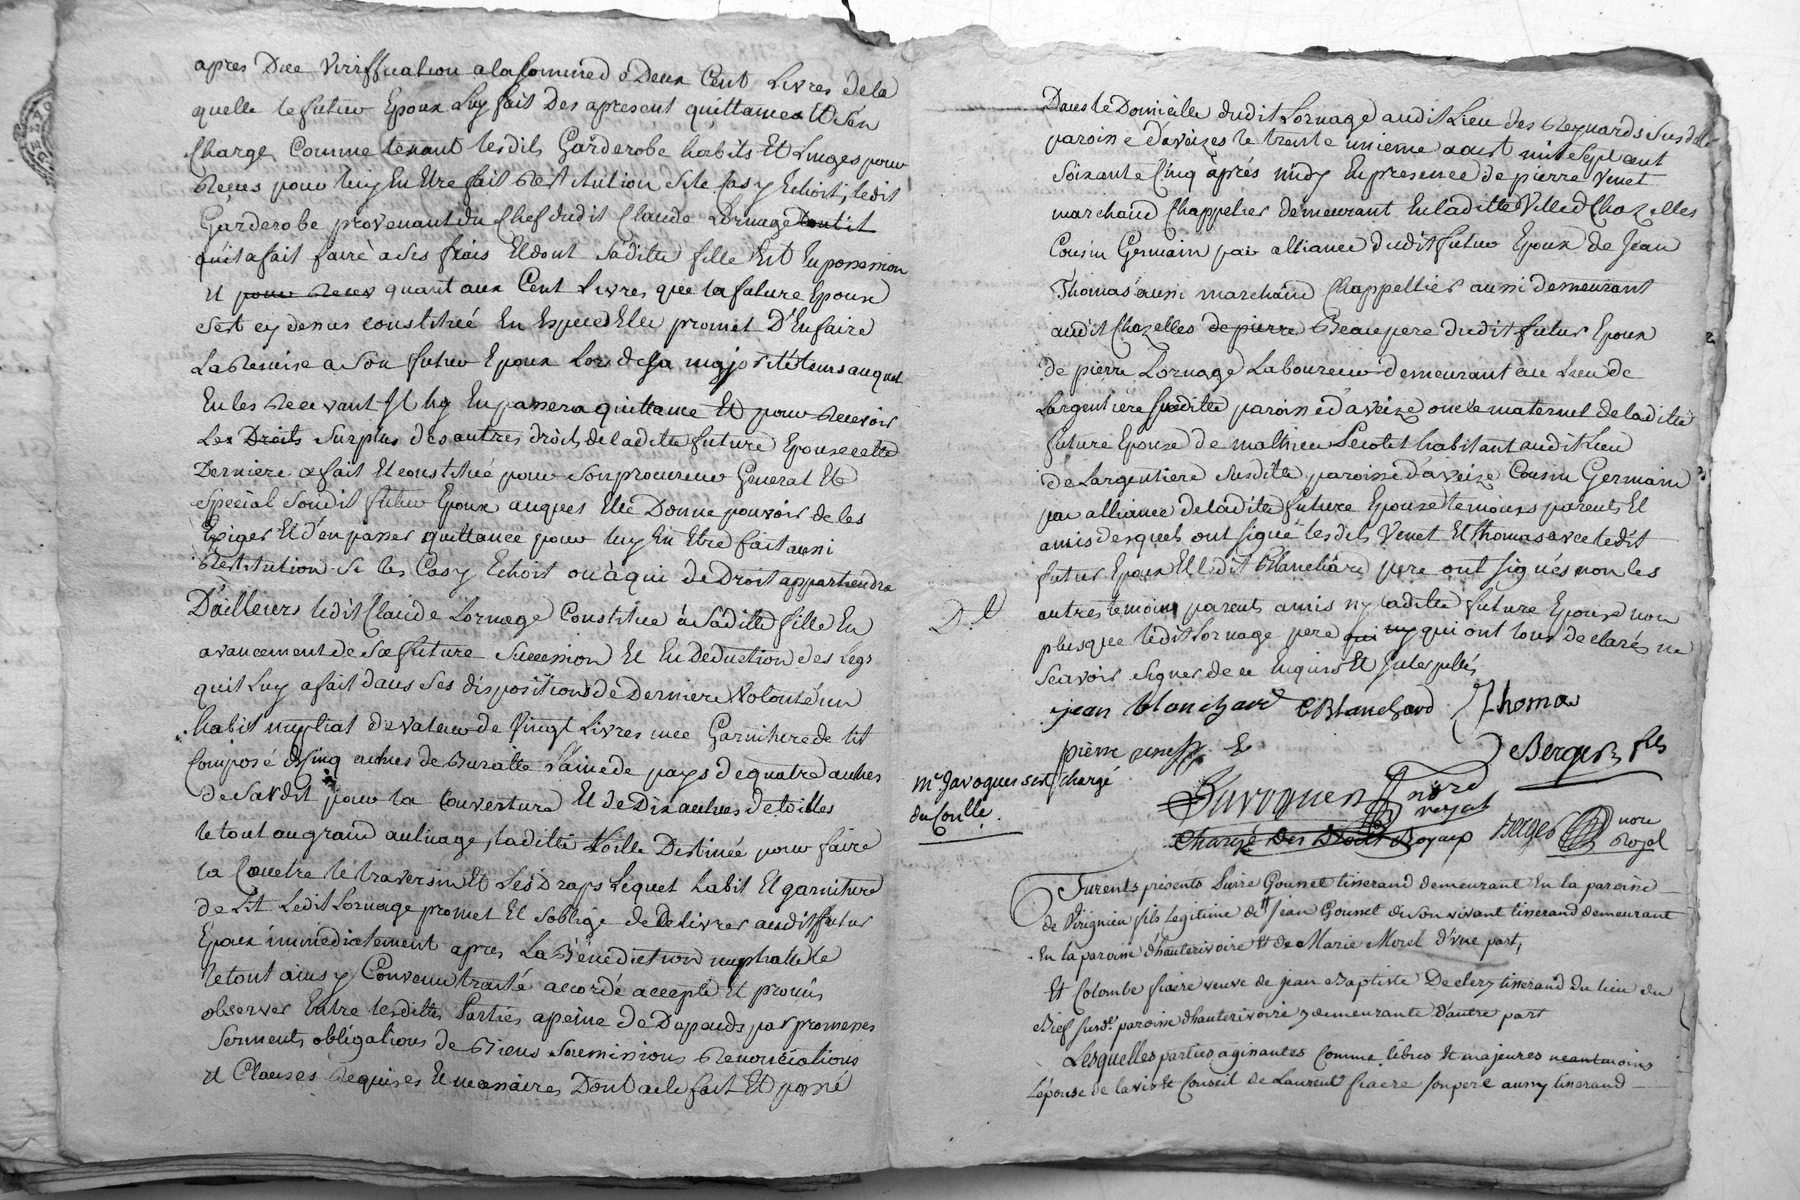 apres Due Veriffication a la somme de Deux Cent Livres de la
quelle le futur Epoux Luy fait Des apresent quittance Et s'en
Charge Comme tenant lesdits Garderobe habits Et Linges pour
Recus pour luy En Etre fait Restitution si le cas y Echoit, ledit
Garderobe provenant du Chef dudit Claude Lornage
quil a fait faire a ses frais Et dont sadite fille Est En possession
Et pour Recus quant aux Cent Livres que la future Epoux
s'est cy dessus constitué En Especes Elle promet D'En faire
La Remise a son futur Epoux Lors de sa majorité tems auquel
En les Recevant Il luy En passera quittance Et pour Recevoir
Les Droits surplus des autres droits de ladite future Epouse cette
Derniere a fait Et constitué pour son procureur General Et
special sondit futur Epoux auquel Elle Donne pouvoir de les
Exiger Et d'en passer quittance pour luy En Etre fait aussi
Restitution si le Cas y Echoit ou à qui de Droit appartiendra
D'ailleurs ledit Claude Lornage Constitue à sadite fille En
avancement de sa future succession Et En Deduction des Legs
quil Luy a fait dans ses dispositions de Derniere Volonté un
habit nuptial de valeur de Vingt Livres une Garniture de lit
Composé de Cinq aulnes de Buratte laine de pays de quatre aulnes
de pour la Couverture Et de Dix aulnes de toilles
le tout au grand aulnage, ladite toille Destinée pour faire
la Couetre le traversin Et Les Draps Lequel habit Et garniture
de Lit Ledit Lornage promet Et s'oblige de Delivrer audit futur
Epoux immédiatement apres La Bénédiction nuptialle
le tout ainsy Convenu traité accordé accepté Et promis
observer Entre lesdittes Parties a peine de Depends par promesses
serments obligations de Biens soumissions Renonciations
Et Clauses Requises Et necessaires Dont acte fait Et passé
Dans le Domicille dudit Lornage audit Lieu des Reynards susditte
paroisse d'aveizes le trente unieme aoust mil sept cent
soixante Cinq après midy En presence de pierre Venet
marchand Chappelier demeurant En laditte Ville de Chazelles
Cousin Germain par alliance dudit futur Epoux de Jean
Thomas aussi marchand Chappellier aussi demeurant
audit Chazelles de pierre Beaupere dudit futur Epoux
de pierre Lornage Laboureur demeurant au Lieu de
Largentiere susditte paroisse d'aveize oncle maternel de laditte
future Epouse de mathieu habitant audit Lieu
de Largentiere susdite paroisse d'aveize Cousin Germain
par alliance de ladite future Epouse temoins parents Et
amis desquels ont signé lesdits Venet Et Thomas avec ledit
futur Epoux Et ledit Blanchard pere ont signés non les
autres temoins parents amis ny ladite future Epouse non
plus que ledit Lornage pere qui ny qui ont tous declarés ne
scavoir signer de ce Enquis Et Interpellés
D.t
jean blanchard CBlanchard Thomas
pierre
DeBerger fils
me. Javoques sest chargé
du Conlle.
Javoques nore
royal
Chargé Des Droits Royaux Berger nore
Royal
Furents présents Pierre Gounet tisserand demeurant En la paroisse
de Virignieu fils legitime de jean Gounet de son vivant tisserand demeurant
En la paroisse d'hauterivoire Et de Marie Morel d'une part,
Et Colombe fiacre veuve de jean Baptiste tisserand du lieu du
Rief susd. paroisse d'hauterivoire y demeurante d'autre part
Lesquelles parties agissantes Comme libres Et majeures neantmoins
l'épouse de lavis Et Conseil de Laurent fiacre son pere aussy tisserand